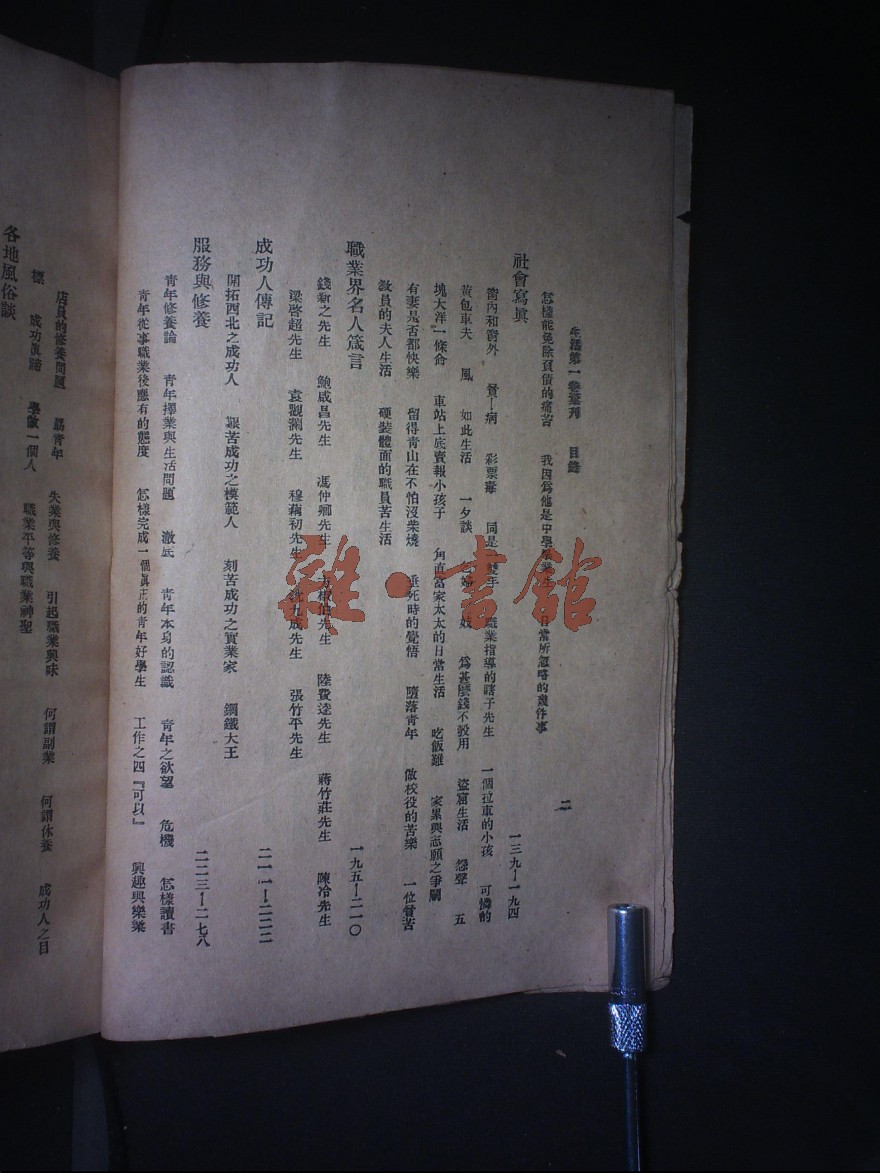 生活第一卷彙刊 目錄 二
怎樣能免除負債的痛苦 我因爲他是中學畢業生 日常所忽略的幾件事
社會寫眞 一三九—一九四
窗內和窗外 貧—病 彩票毒 同是 雙手 職業指導的瞎子先生 一個拉車的小孩 可憐的
黃包車夫 風 如此生活 一夕談 妓 爲甚麼錢不彀用 盜窟生活 怨聲 五
塊大洋一條命 車站上底賣報小孩子 角直富家太太的日常生活 吃飯難 家累與志願之爭鬭
有妻是否都快樂 留得青山在不怕沒柴燒 垂死時的覺悟 墮落青年 做校役的苦樂 一位貧苦
教員的夫人生活 硬裝體面的職員苦生活
職業界名人箴言 一九五—二一〇
錢新之先生 鮑咸昌先生 馮仲卿先生 方椒伯先生 陸費逵先生 蔣竹莊先生 陳冷先生
梁啓超先生 袁觀瀾先生 穆藕初先生 沈九成先生 張竹平先生
成功人傳記 二一一—二二二
開拓西北之成功人 艱苦成功之模範人 刻苦成功之實業家 鋼鐵大王
服務與修養 二二三—二七八
青年修養論 青年擇業與生活問題 澈底 青年本身的認識 青年之欲望 危機 怎樣讀書
青年從事職業後應有的態度 怎樣完成一個眞正的青年好學生 工作之四『可以』 興趣與樂業
店員的修養問題 勗青年 失業與修養 引起職業興味 何謂副業 何謂休養 成功人之目
標 成功眞諦 學做一個人 職業平等與職業神聖
各地風俗談
雜·書館